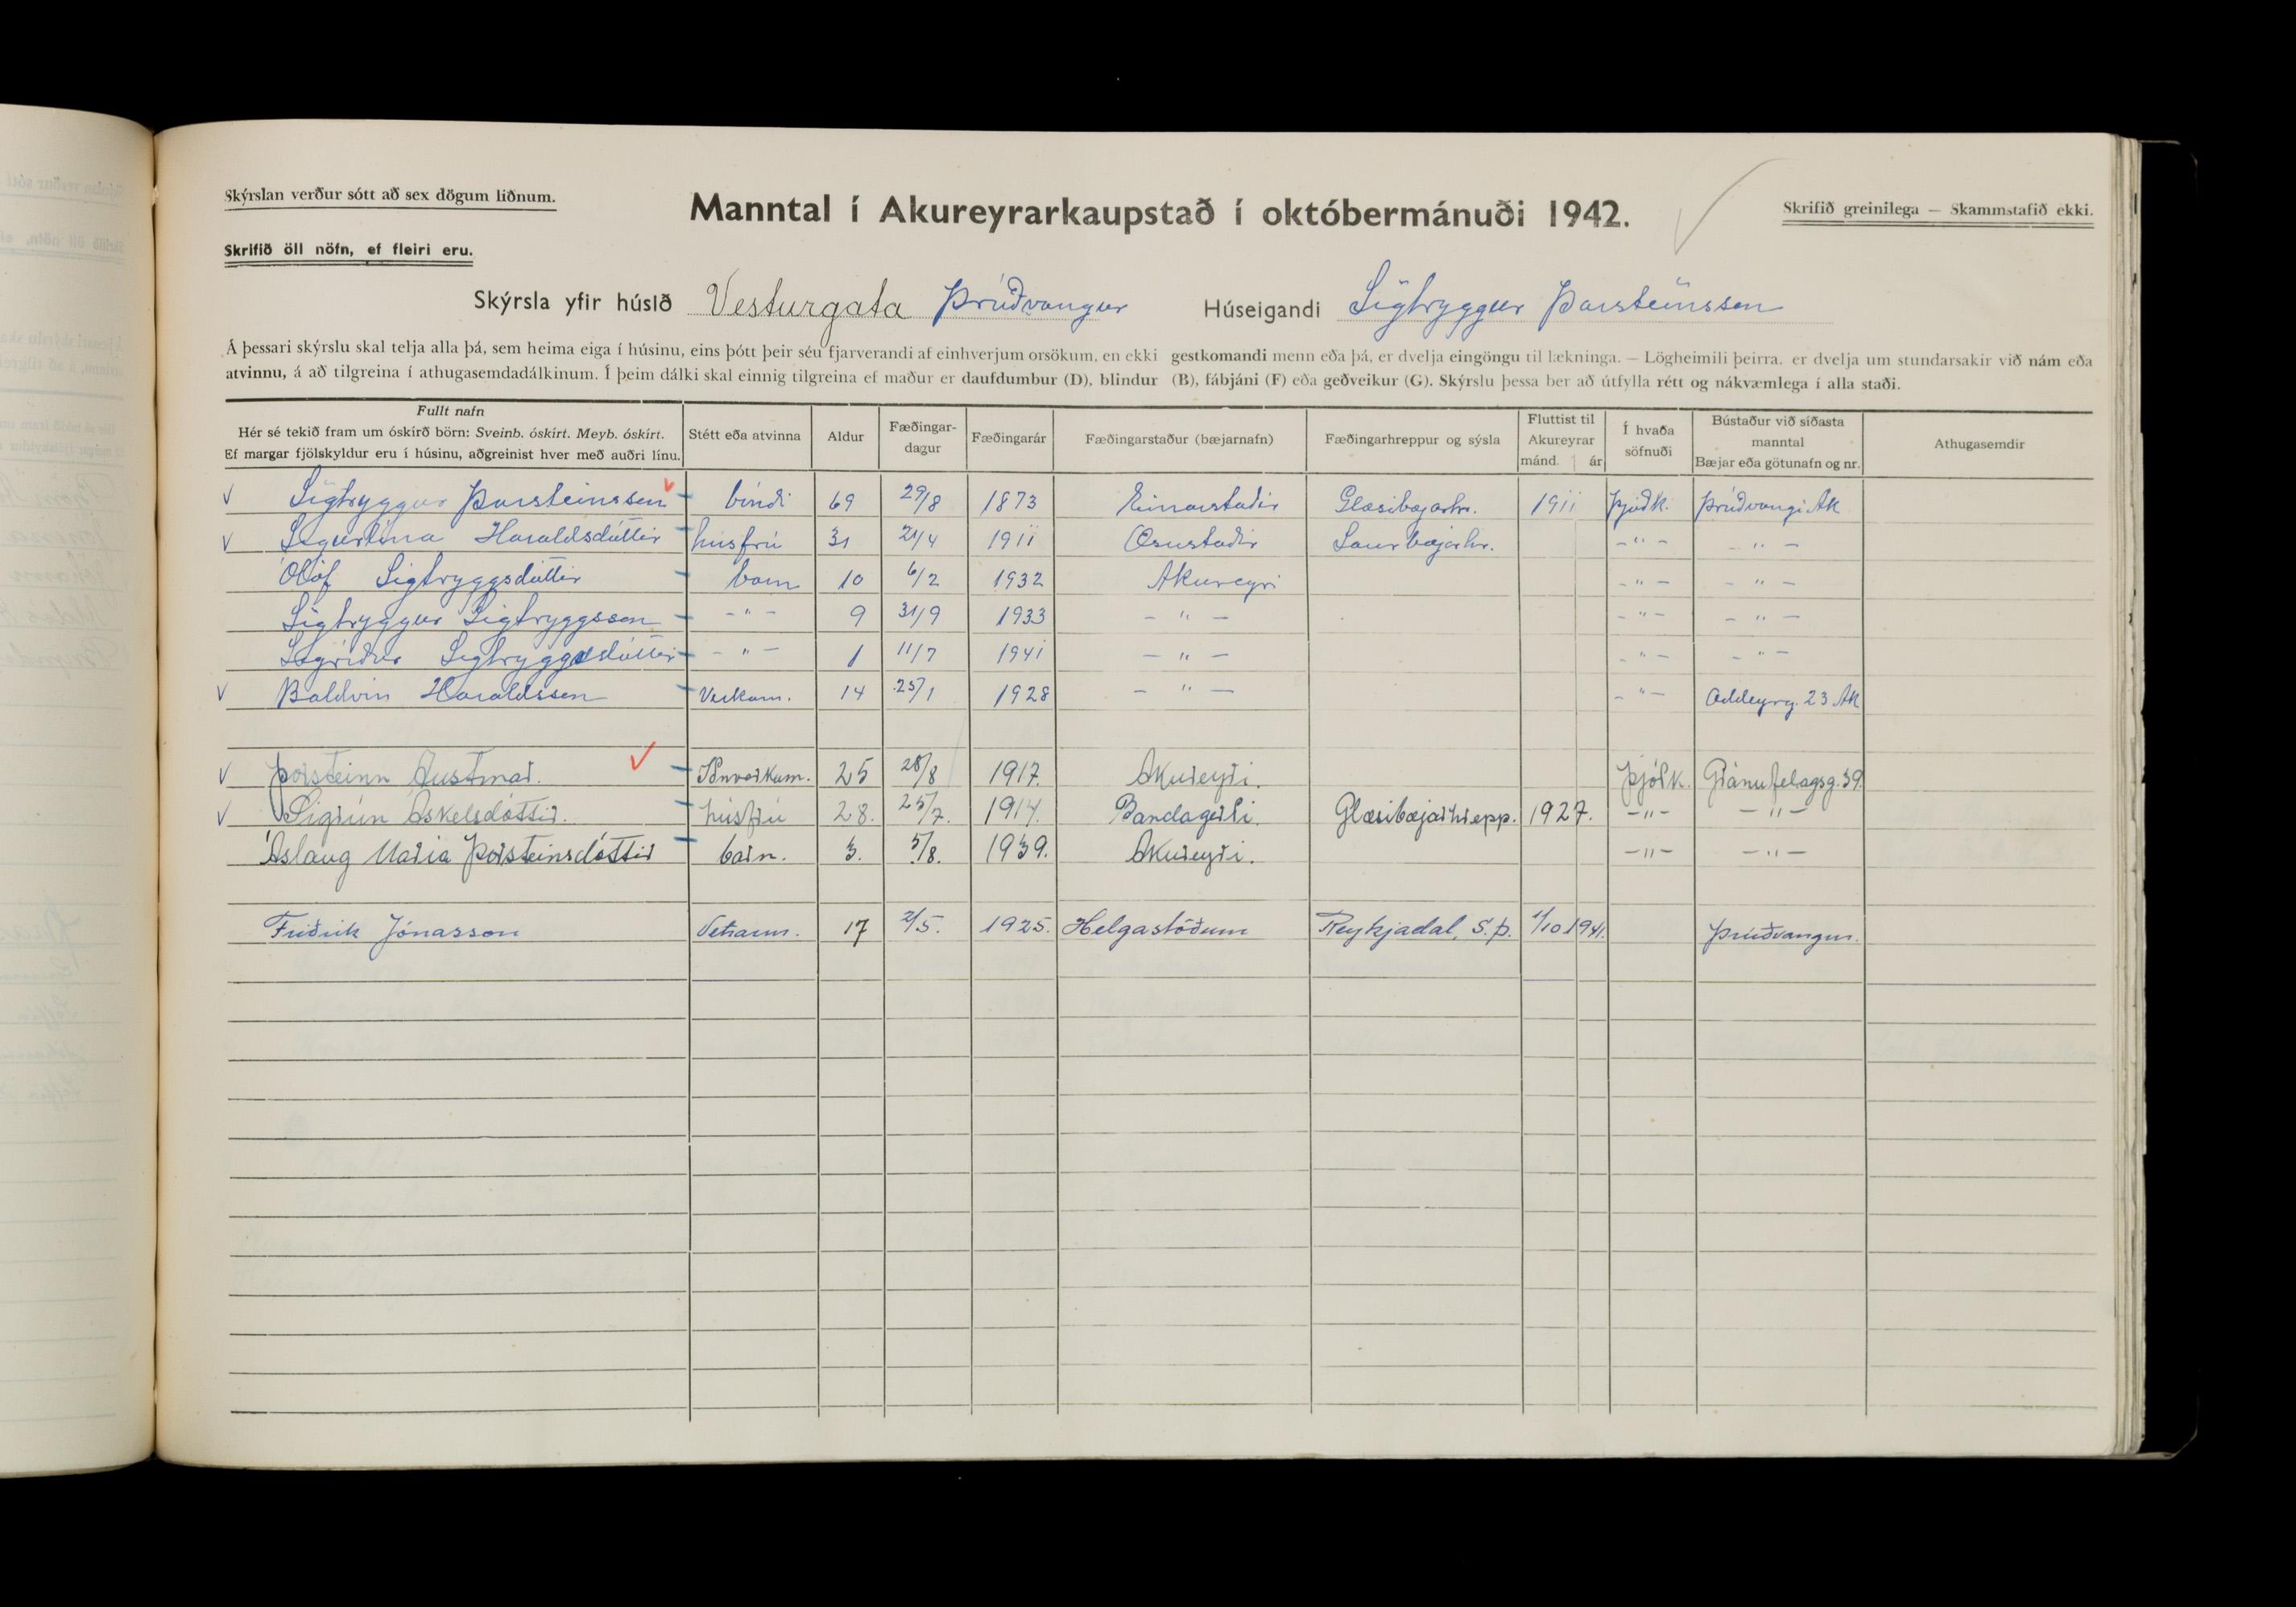 Skýrslan verður sótt að sex dögum liðnum.
Manntal í Akureyrarkaupstað í októbermánuði 1942.
Skrifið greinilega — Skammstafið ekki.
Skrifið öll nöfn, ef fleiri eru.
Skýrsla yfir húsið Vesturgata Þrúðvangur Húseigandi Sigtryggur Þorsteinsson
Á þessari skýrslu skal telja alla þá, sem heima eiga í húsinu, eins þótt þeir séu fjarverandi af einhverjum orsökum, en ekki gestkomandi menn eða þá, er dvelja eingöngu til lækninga. — Lögheimili þeirra, er dvelja um stundarsakir við nám eða
atvinnu, á að tilgreina í athugasemdadálkinum. Í þeim dálki skal einnig tilgreina ef maður er daufdumbur (D), blindur (B), fábjáni (F) eða geðveikur (G). Skýrslu þessa ber að útfylla rétt og nákvæmlega í alla staði.
Fullt nafn
Hér sé tekið fram um óskírð börn: Sveinb. óskírt. Meyb. óskírt.
Ef margar fjölskyldur eru í húsinu, aðgreinist hver með auðri línu.
Stétt eða atvinna
Aldur
Fæðingar-
dagur
Fæðingarár
Fæðingarstaður (bæjarnafn)
Fæðingarhreppur og sýsla
Fluttist til
Akureyrar
mánd. ár
Í hvaða
söfnuði
Bústaður við síðasta
manntal
Bæjar eða götunafn og nr.
Athugasemdir
Sigtryggur Þorsteinsson bóndi 69 29/8 1873 Einarstaðir Glæsibæjarhr. 1911 Þjóðk. Þrúðvangi Ak
Sigurlína Haraldsdóttir húsfrú 31 21/4 1911 Æsustaðir Saurbæjarhr. -"- -"-
Ólöf Sigtryggsdóttir barn 10 6/2 1932 Akureyri -"- -"-
Sigtryggur Sigtryggsson -"- 9 31/9 1933 -"- -"- -"-
Sigríður Sigtryggsdóttir -"- 1 11/7 1941 -"- -"- -"-
Baldvin Haraldsson Verkam. 14 25/1 1928 -"- -"- Oddeyrg. 23 Ak
Þorsteinn Austmar. 25 28/8 1917. Akureyri. Þjóðk. Gránufélagsg. 39.
Sigrún Áskelsdóttir. húsfrú 28. 25/7. 1914. Bandagerði. Glæsibæjarhrepp. 1927. -"- -"-
Áslaug María Þorsteinsdóttir barn. 3. 5/8. 1939. Akureyri. -"- -"-
Friðrik Jónasson Vetrarm. 17 2/5. 1925. Helgastöðum Reykjadal, S. þ. 1/10 1941. Þrúðvangur.